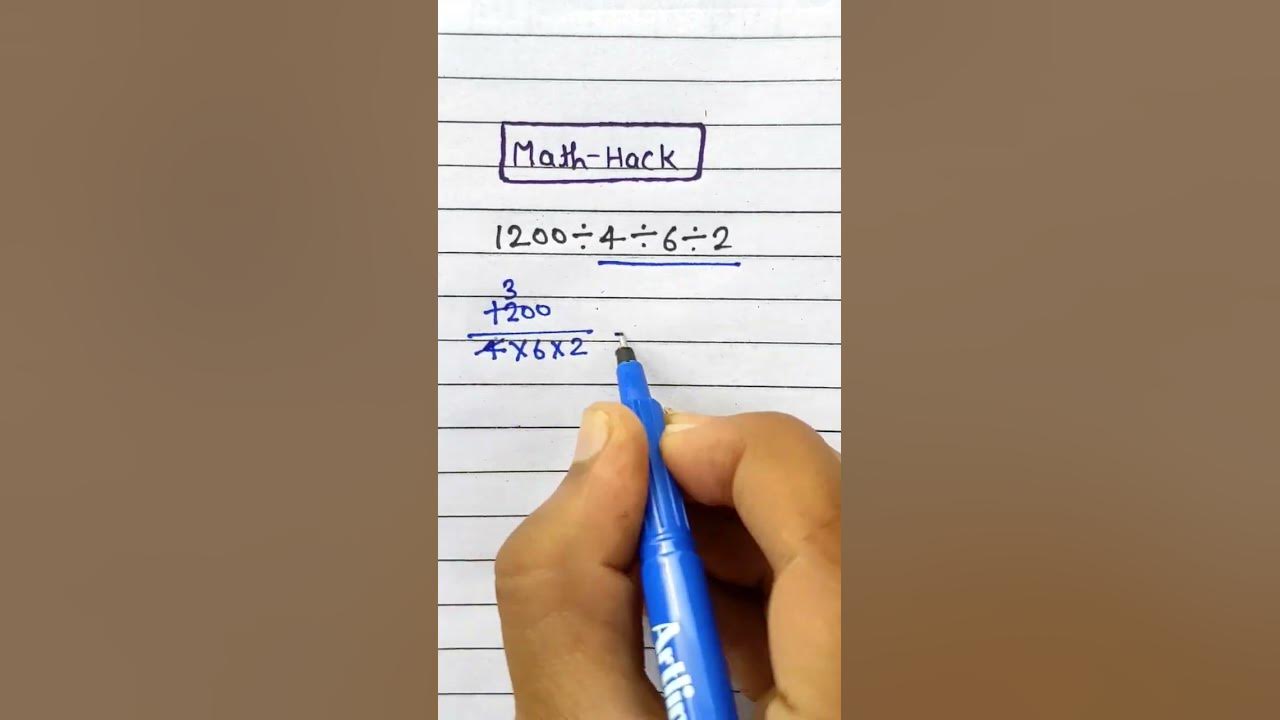 Math-Hack
1200÷4÷6÷2
3
1200
4×6×2
Artlin